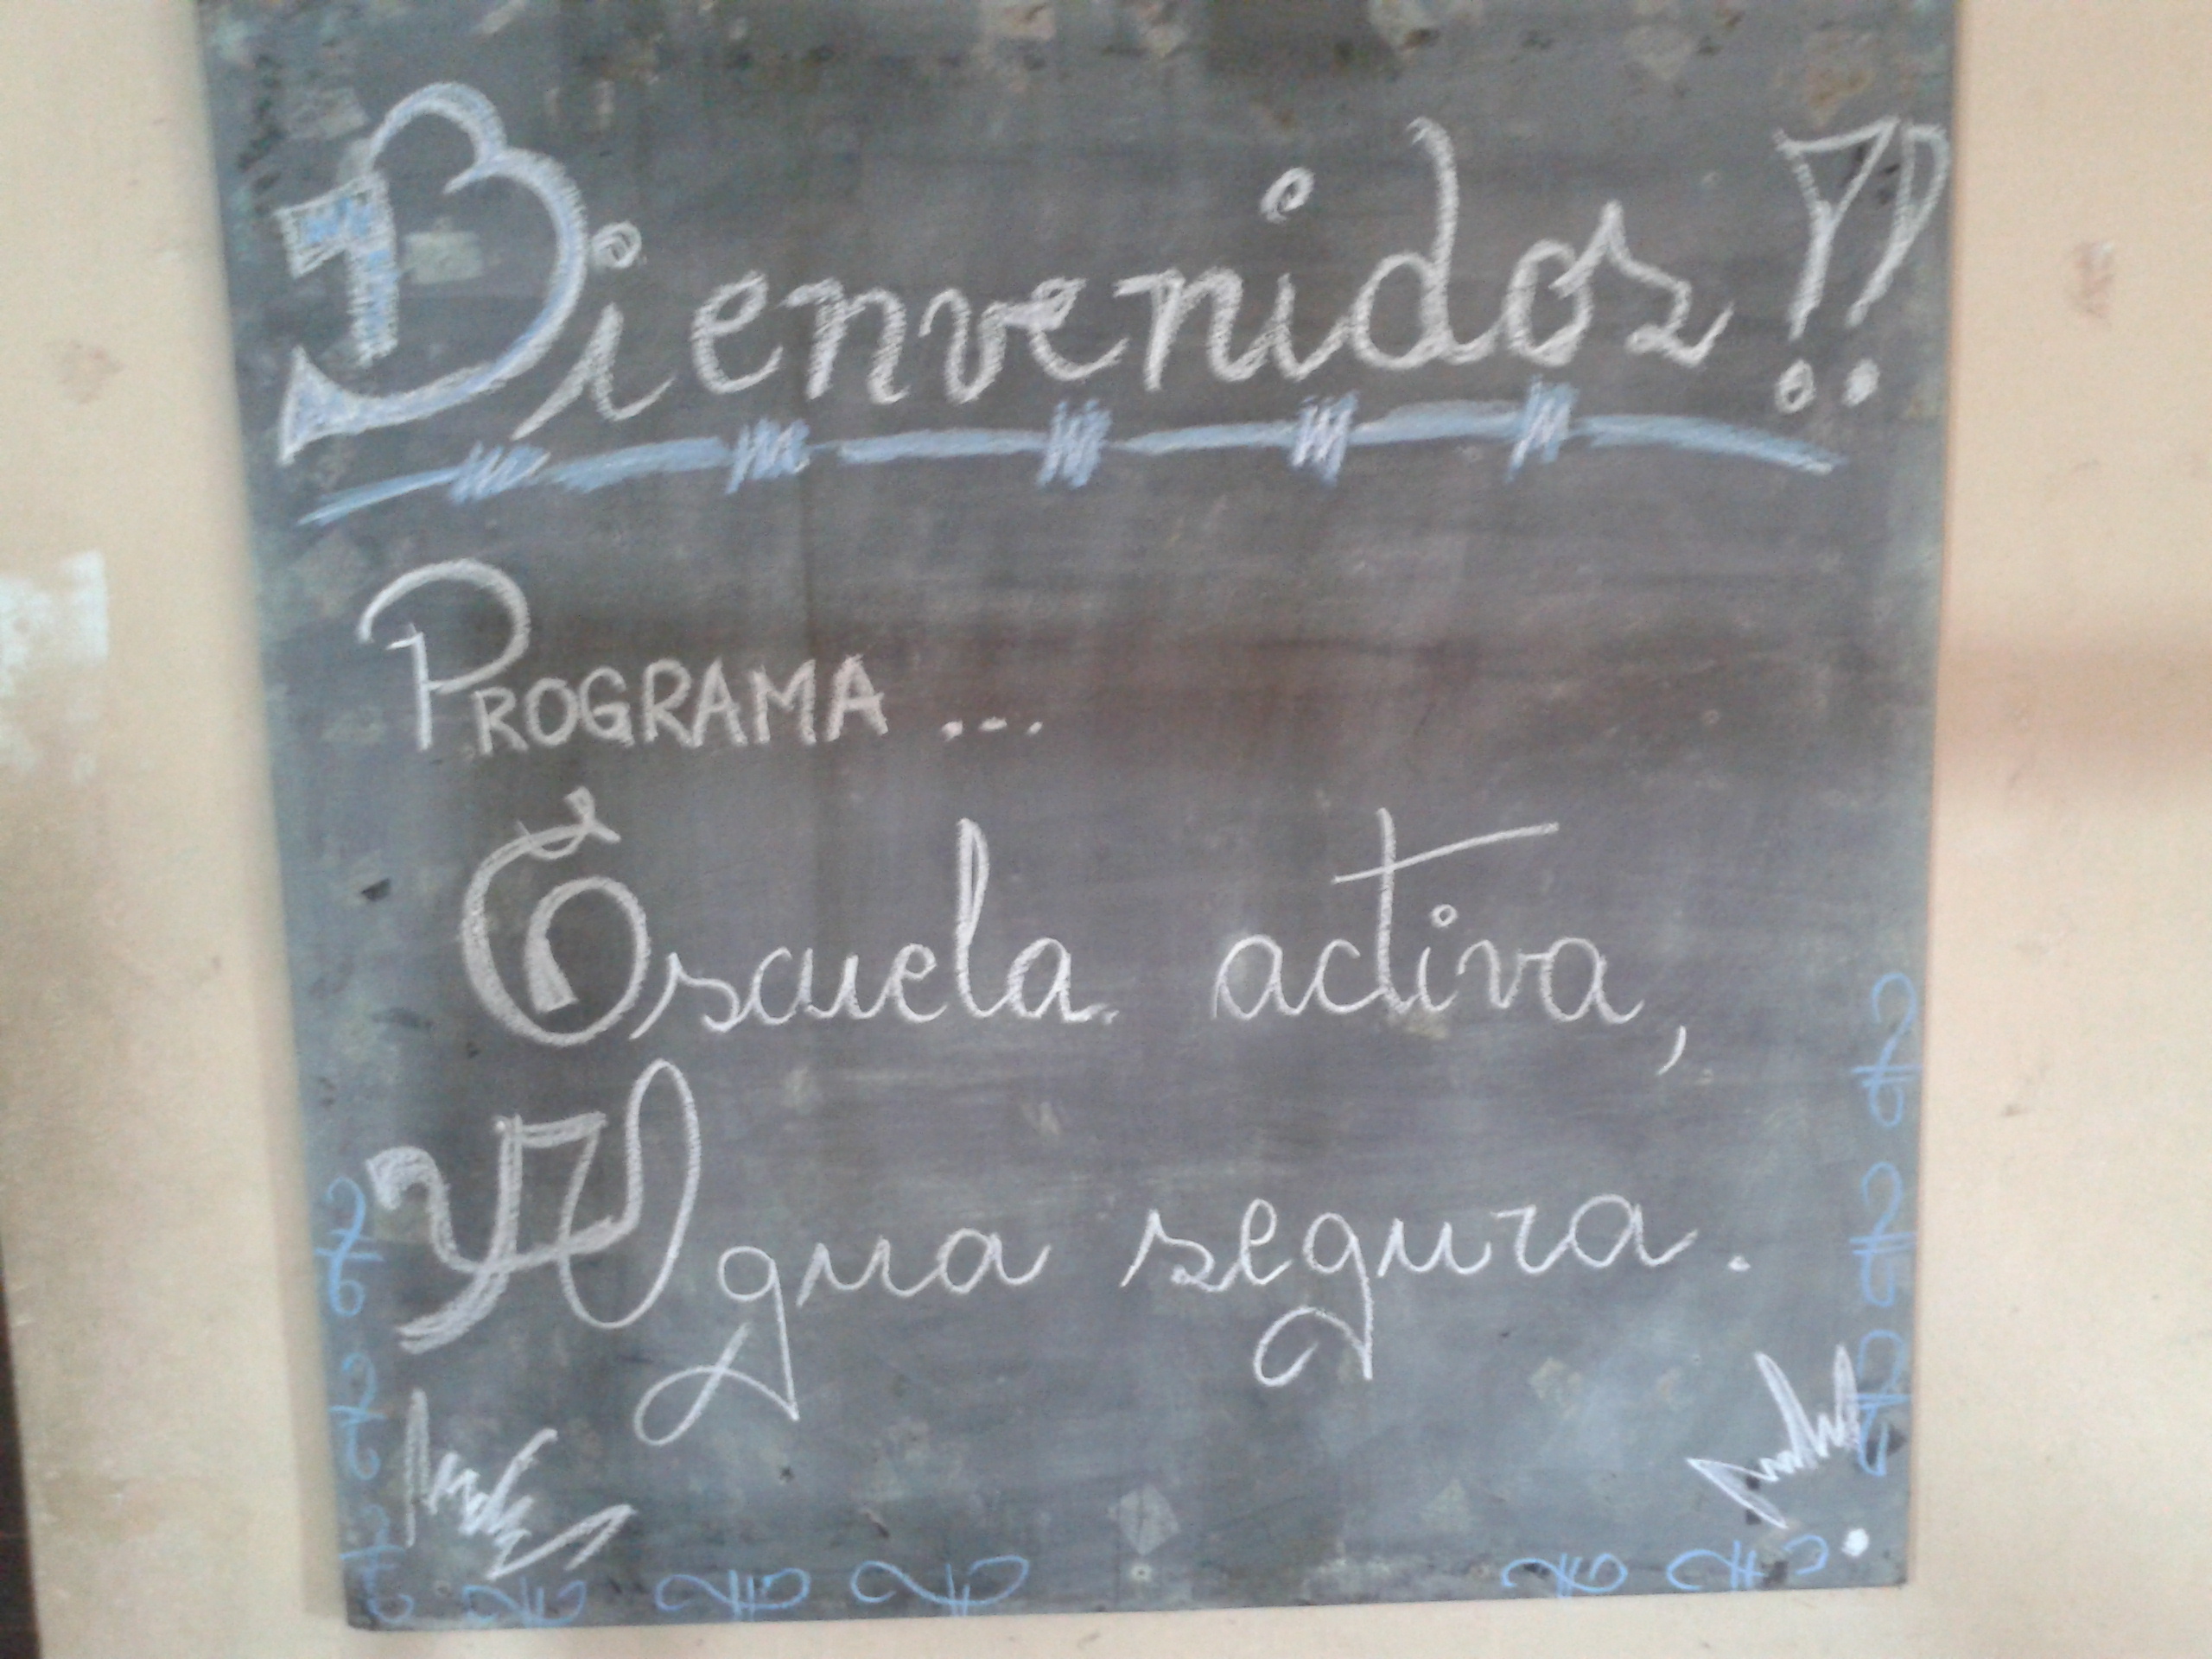 Bienvenidos!!
PROGRAMA ...
Escuela activa,
Agua segura.